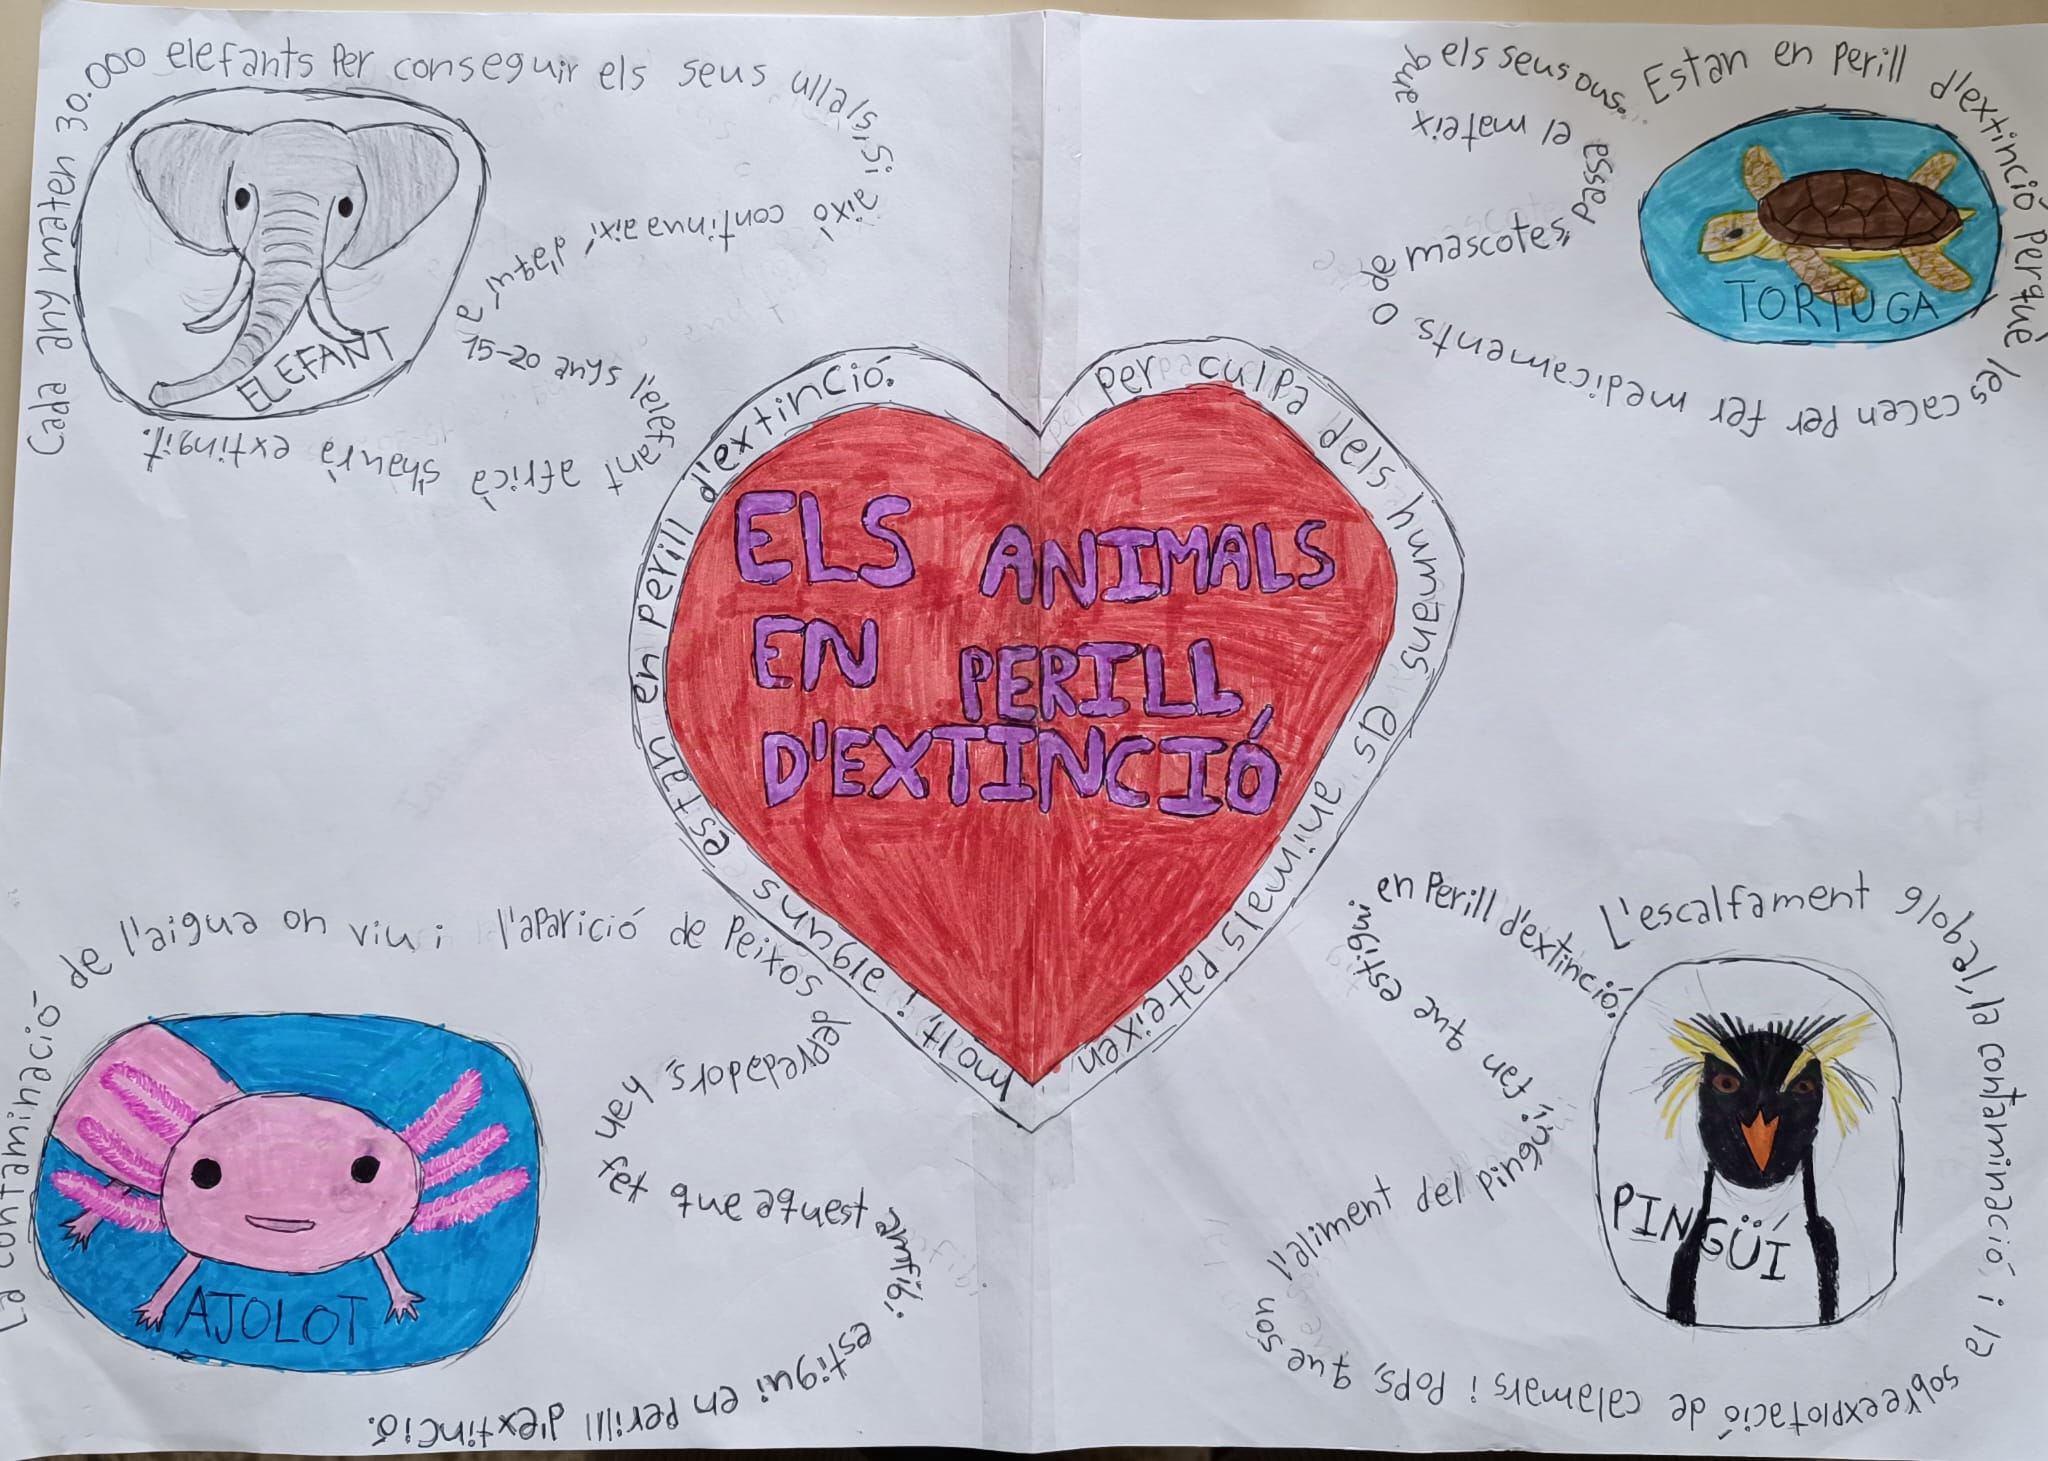 Cada any maten 30.000 elefants per conseguir els seus ullals, si això continua així, d'aquí a 15-20 anys l'elefant africà s'haurà extingit.
ELEFANT
Estan en perill d'extinció perquè les cacen per fer medicaments, o de mascotes, passa el mateix que els seus ous.
TORTUGA
per culpa dels humans els animals pateixen molt, i alguns estan en perill d'extinció.
ELS ANIMALS
EN PERILL
D'EXTINCIÓ
La contaminació de l'aigua on viu i l'aparició de peixos depredadors, han fet que aquest amfibi estigui en perill d'extinció.
AJOLOT
L'escalfament global, la contaminació i la sobreexplotació de calamars i pops, que son l'aliment del pingüí, fan que estigui en perill d'extinció.
PINGÜÍ